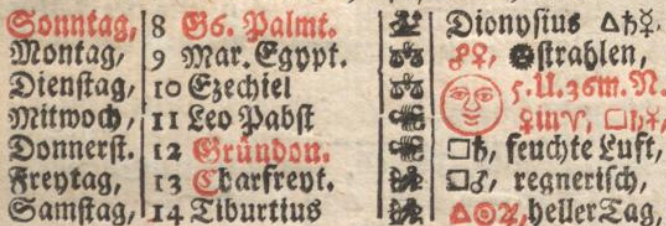 Sonntag, 8 G6. Palmt. Dionysius △♄☿.
Montag, 9 Mar. Egypt. ☍♀, strahlen,
Dienstag, 10 Ezechiel 5. U. 36m. N.
Mitwoch, 11 Leo Pabst ♀ in ♈, □♄☿,
Donnerst. 12 Gründon. □♄, feuchte Luft,
Freytag, 13 Charfreyt. □♂, regnerisch,
Samstag, 14 Tiburtius △☉♃, heller Tag,